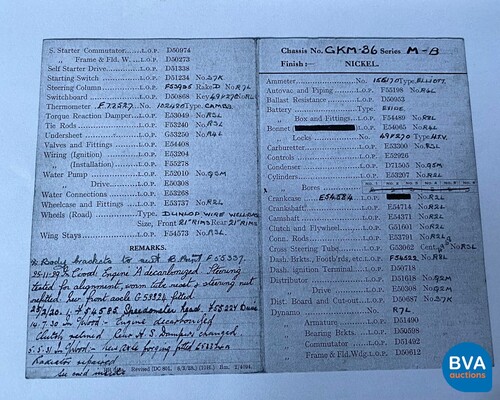 S. Starter Commutator.... L.O.P. D50974
" Frame & Fld. W.... L.O.P. D50273
Self Starter Drive.... L.O.P. D51338
Starting Switch .... L.O.P. D51234 No. 27K
Steering Column .... L.O.P. Rake D No. R7L
Switchboard .... L.O.P. D50868 Key
Thermometer F.72587. No. 102420 Type CAMBS
Torque Reaction Damper... L.O.P. E53049 No. R3L
Tie Rods .... L.O.P. E53240 No. R3L
Undersheet .... L.O.P. G53250 No. R4L
Valves and Fittings .... L.O.P. E54408
Wiring (Ignition) .... L.O.P. E53204
" (Installation).... L.O.P. F55278
Water Pump .... L.O.P. E52010 No. 9CM
" Drive.... L.O.P. E50308
Water Connections.... L.O.P. E53268
Wheelcase and Fittings.... L.O.P. E53737 No. R2L
Wheels (Road) .... Type. DUNLOP WIRE WELLBASE
Size, Front 21" RIMS Rear 21" RIMS
Wing Stays.... L.O.P. F54573 No. R3L
REMARKS.
Body brackets to suit B. Print F.55357.
25-11-29 In Cwood. Engine decarbonized. Steering
tested for alignment, worn title nest & steering nut
refitted. New front axle G.59324 fitted
F54585 Speedometer Road F55224
14.7.30 In Cwood - Engine decarbonised
Clutch relined Rear H.S. Dampers changed
5.5.31 In Cwood. New axle forging fitted
Radiator repaired
Revised (DC 801.
Chassis No. GKM-36 Series M-B
Finish: NICKEL.
Ammeter.... No. 156170 Type ELLIOTT
Autovac and Piping.... L.O.P. F55198 No. R4L
Ballast Resistance .... L.O.P. D50953
Battery .... Type EXIDE
" Box and Fittings.... L.O.P. F54489 No. R2L
Bonnet L.O.P. E54065 No. R4L
" Locks .... No. 49F270 Type YEV.
Carburetter.... L.O.P. E53300 No. R5L
Controls .... L.O.P. E52926
Condenser .... L.O.P. D71505 No. 9CM
Cylinders.... L.O.P. E53207 No. R2L
" Bores
Crankcase E54584 L.O.P. No. R2L
Crankshaft .... L.O.P. E54714 No. R2L
Camshaft .... L.O.P. E54371 No. R2L
Clutch.... L.O.P. E50971 No. R2L
Conn. Rods.... L.O.P. E53791 No. R2L
Cross Steering Tube .... L.O.P. G53062 No. R3L
Dash. Brkts., Footb'rds, etc.... L.O.P. F54522 No. R2L
Dash. Ignition Terminal .... L.O.P. D50718
Distributor .... L.O.P. E50308 No. 9CM
Dist. Board and Cut-out .... L.O.P. D50687 No. 27K
Dynamo .... No. R7L
" Armature .... L.O.P. D51490
" Bearing Brkts. .... L.O.P. E50598
" Commutator .... L.O.P. D51492
" Frame & Fld. Wdg. L.O.P. D50612
BVA
auctions